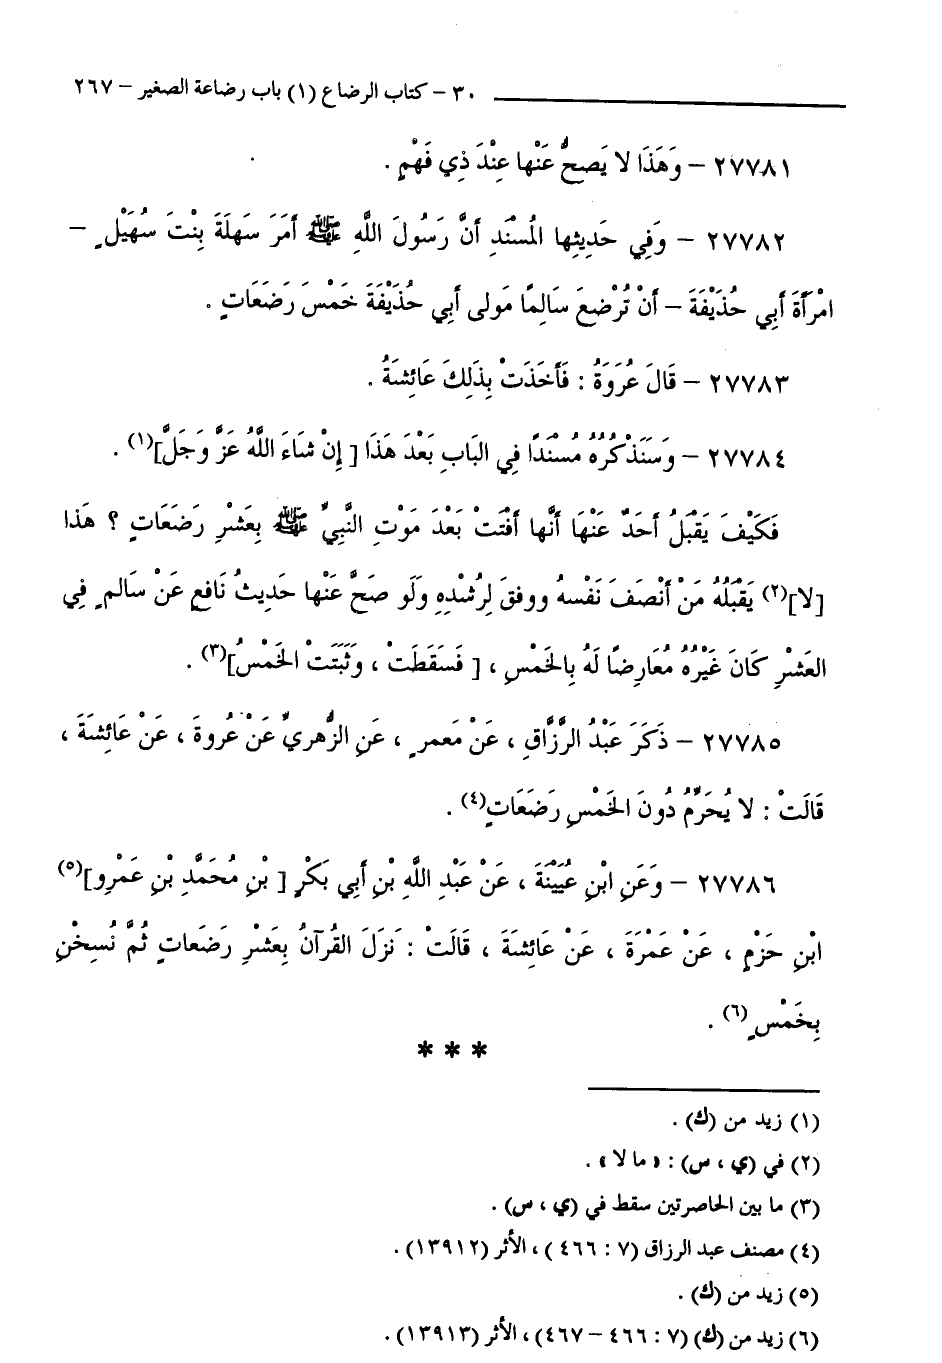 ٣٠ - كتاب الرضاع (١) باب رضاعة الصغير - ٢٦٧
٢٧٧٨١ - وَهَذَا لا يَصحُّ عَنْها عِنْدَ ذِي فَهْمٍ .
٢٧٧٨٢ - وَفِي حَدِيثِها المُسْنَدِ أَنَّ رَسُولَ اللَّهِ ﷺ أَمَرَ سَهلَةَ بِنْتَ سُهَيْلٍ -
امْرَأَةَ أَبِي حُذَيْفَةَ - أَنْ تُرْضِعَ سَالِمًا مَولى أَبِي حُذَيْفَةَ خَمْسَ رَضَعَاتٍ .
٢٧٧٨٣ - قَالَ عُرَوَةُ : فَأَخَذَتْ بِذَلِكَ عَائِشَةُ .
٢٧٧٨٤ - وَسَنَذْكُرُهُ مُسْنَدًا فِي البَابِ بَعْدَ هَذَا [ إِنْ شَاءَ اللَّهُ عَزَّ وَجَلَّ](١) .
فَكَيْفَ يَقْبَلُ أَحَدٌ عَنْهَا أَنَّها أَفْتَتْ بَعْدَ مَوْتِ النَّبِيِّ ﷺ بِعَشْرِ رَضَعَاتٍ ؟ هَذا
[لا](٢) يَقْبَلُهُ مَنْ أَنْصَفَ نَفْسهُ ووفقَ لِرُشْدِهِ وَلَو صَحَّ عَنْها حَدِيثُ نَافعٍ عَنْ سَالمٍ فِي
العَشْرِ كَانَ غَيْرُهُ مُعَارِضًا لَهُ بِالخَمْسِ ، [ فَسَقَطَتْ ، وَثَبَتَتْ الخَمْسُ](٣) .
٢٧٧٨٥ - ذَكَرَ عَبْدُ الرَّزَّاقِ ، عَنْ مَعمرٍ ، عَنِ الزُّهريِّ عَنْ عُروةَ ، عَنْ عَائِشَةَ ،
قَالَتْ : لا يُحَرِّمُ دُونَ الخَمْسِ رَضَعَاتٍ(٤) .
٢٧٧٨٦ - وَعَنِ ابْنِ عُيَيْنَةَ ، عَنْ عَبْدِ اللَّهِ بْنِ أَبِي بَكْرٍ [ بْنِ مُحَمَّدِ بْنِ عَمْرِو](٥)
ابْنِ حَزْمٍ ، عَنْ عَمْرَةَ ، عَنْ عَائِشَةَ ، قَالَتْ : نَزَلَ القُرآنُ بِعَشْرِ رَضَعاتٍ ثُمَّ نُسِخْنِ
بِخَمْسٍ(٦) .
* * *
(١) زيد من (ك) .
(٢) في (ي ، س) : « ما لا » .
(٣) ما بين الحاصرتين سقط في (ي ، س) .
(٤) مصنف عبد الرزاق (٧ : ٤٦٦ ) ، الأثر (١٣٩١٢) .
(٥) زيد من (ك) .
(٦) زيد من (ك) (٧ : ٤٦٦ - ٤٦٧) ، الأثر (١٣٩١٣) .